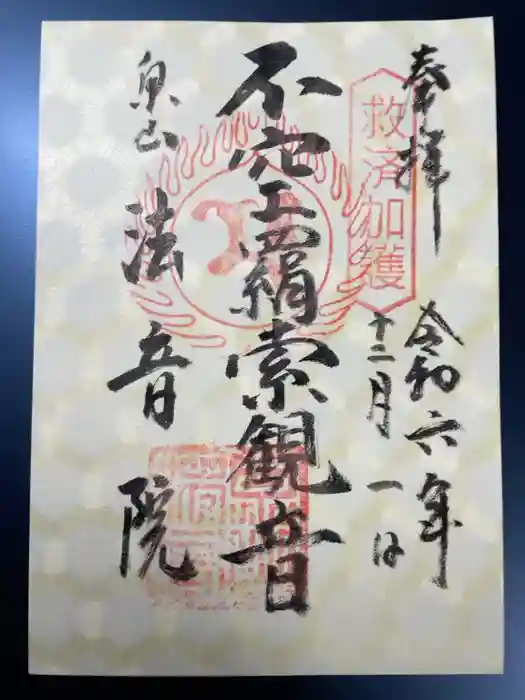 奉拝
令和六年
十二月一日
救済加護
不空羂索観音
泉山
法音院